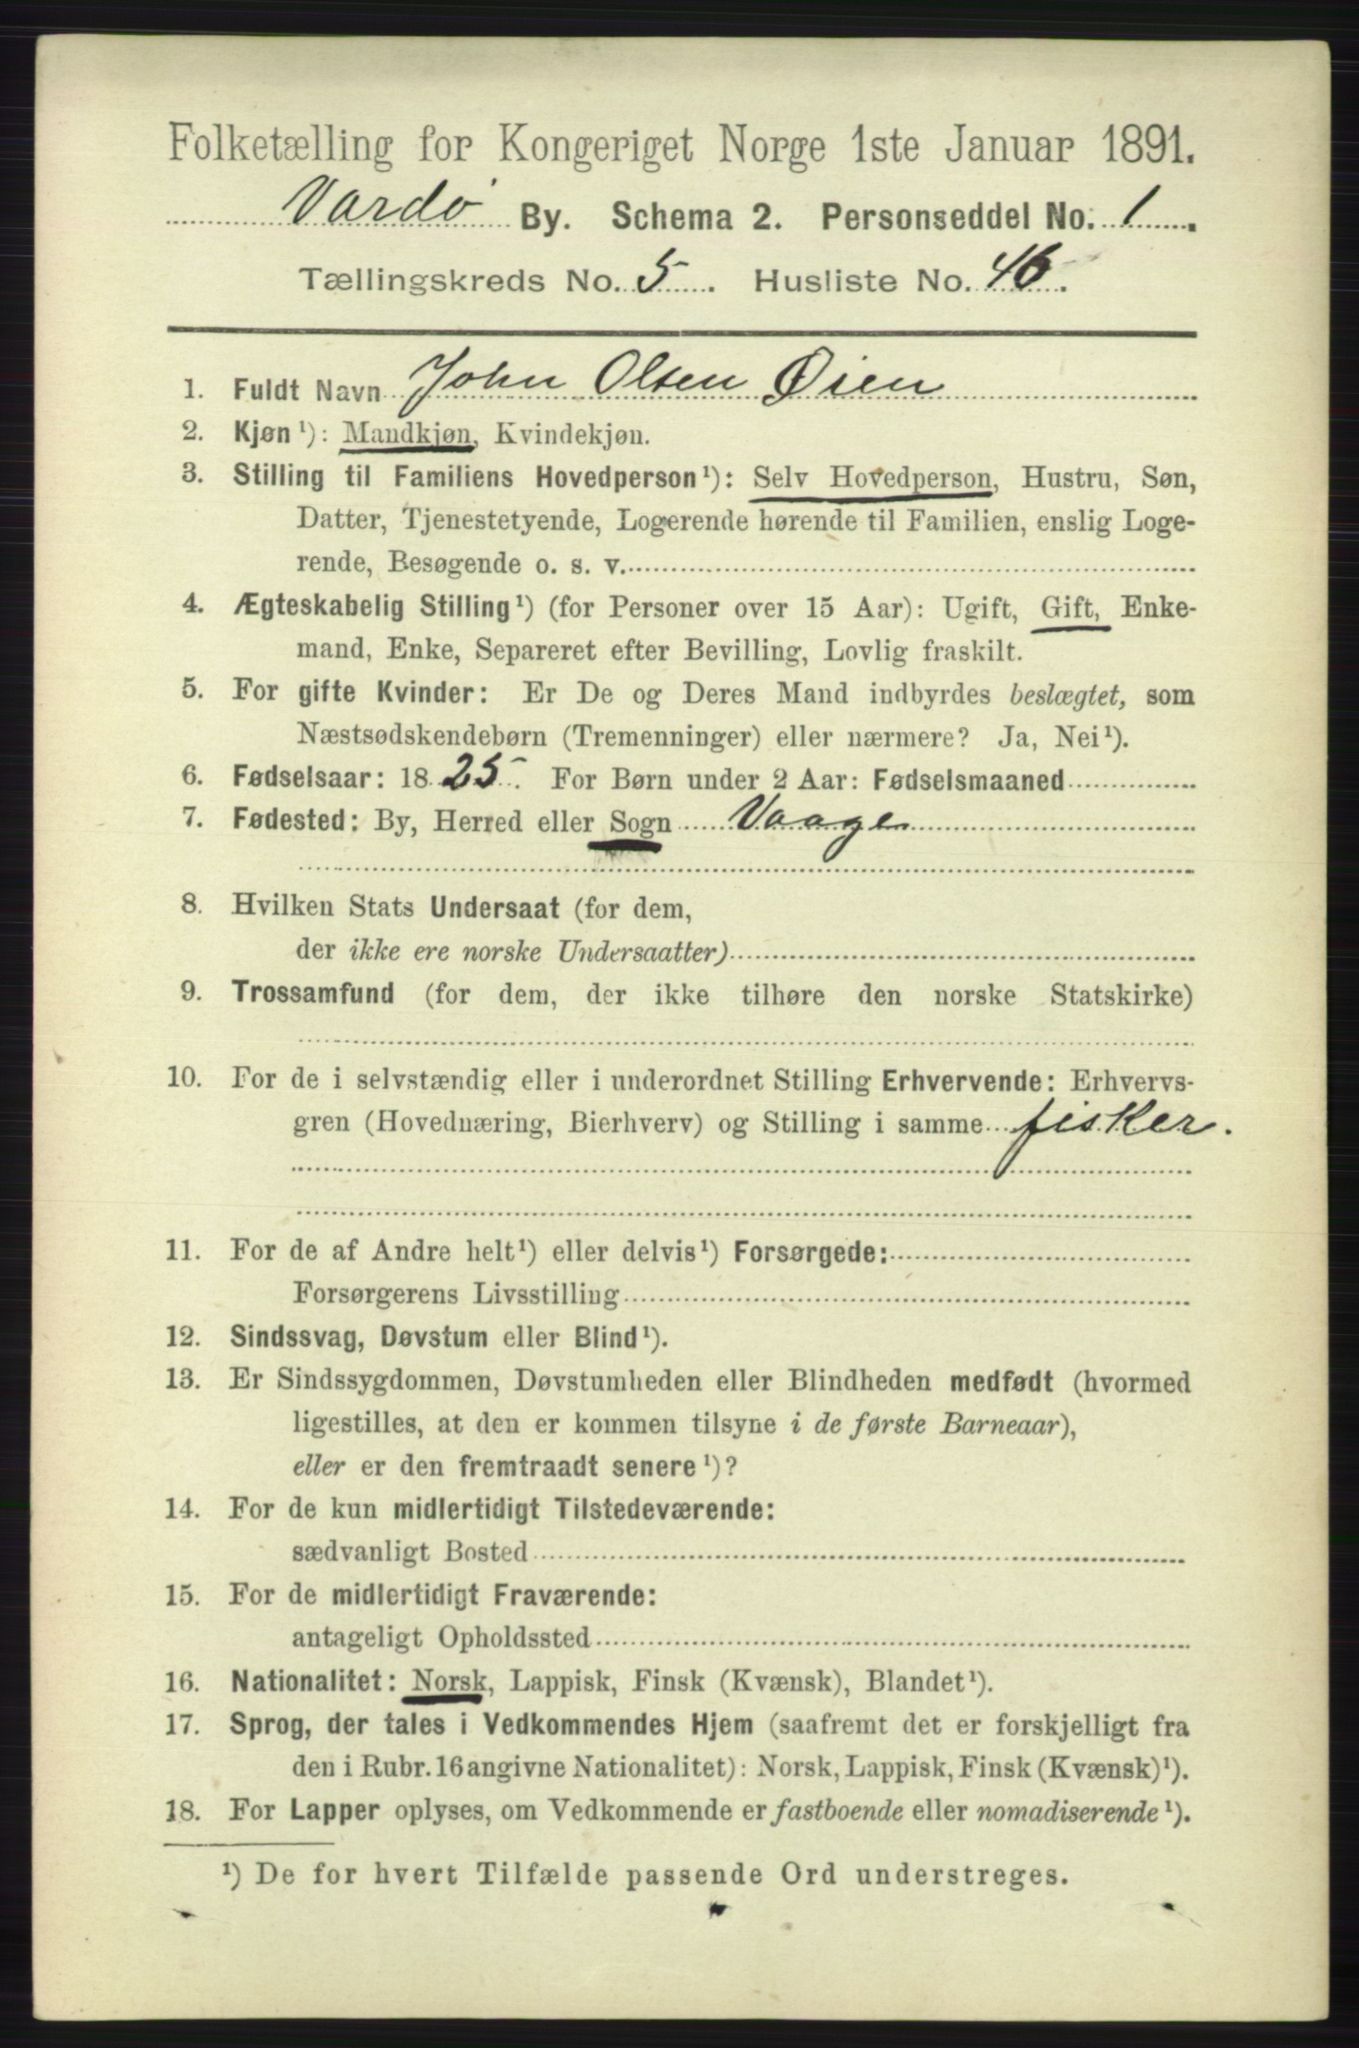 Folketælling for Kongeriget Norge 1ste Januar 1891.
Vardø By. Schema 2. Personseddel No. 1.
Tællingskreds No. 5. Husliste No. 46.
1. Fuldt Navn John Olsen Øien
2. Kjøn¹): Mandkjøn, Kvindekjøn.
3. Stilling til Familiens Hovedperson¹): Selv Hovedperson, Hustru, Søn,
Datter, Tjenestetyende, Logerende hørende til Familien, enslig Loge-
rende, Besøgende o. s. v.
4. Ægteskabelig Stilling¹) (for Personer over 15 Aar): Ugift, Gift, Enke-
mand, Enke, Separeret efter Bevilling, Lovlig fraskilt.
5. For gifte Kvinder: Er De og Deres Mand indbyrdes beslægtet, som
Næstsødskendebørn (Tremenninger) eller nærmere? Ja, Nei¹).
6. Fødselsaar: 1825. For Børn under 2 Aar: Fødselsmaaned
7. Fødested: By, Herred eller Sogn Vaage
8. Hvilken Stats Undersaat (for dem,
der ikke ere norske Undersaatter)
9. Trossamfund (for dem, der ikke tilhøre den norske Statskirke)
10. For de i selvstændig eller i underordnet Stilling Erhvervende: Erhvervs-
gren (Hovednæring, Bierhverv) og Stilling i samme fisker.
11. For de af Andre helt¹) eller delvis¹) Forsørgede:
Forsørgerens Livsstilling
12. Sindssvag, Døvstum eller Blind¹).
13. Er Sindssygdommen, Døvstumheden eller Blindheden medfødt (hvormed
ligestilles, at den er kommen tilsyne i de første Barneaar),
eller er den fremtraadt senere¹)?
14. For de kun midlertidigt Tilstedeværende:
sædvanligt Bosted
15. For de midlertidigt Fraværende:
antageligt Opholdssted
16. Nationalitet: Norsk, Lappisk, Finsk (Kvænsk), Blandet¹).
17. Sprog, der tales i Vedkommendes Hjem (saafremt det er forskjelligt fra
den i Rubr. 16 angivne Nationalitet): Norsk, Lappisk, Finsk (Kvænsk)¹).
18. For Lapper oplyses, om Vedkommende er fastboende eller nomadiserende¹).
¹) De for hvert Tilfælde passende Ord understreges.